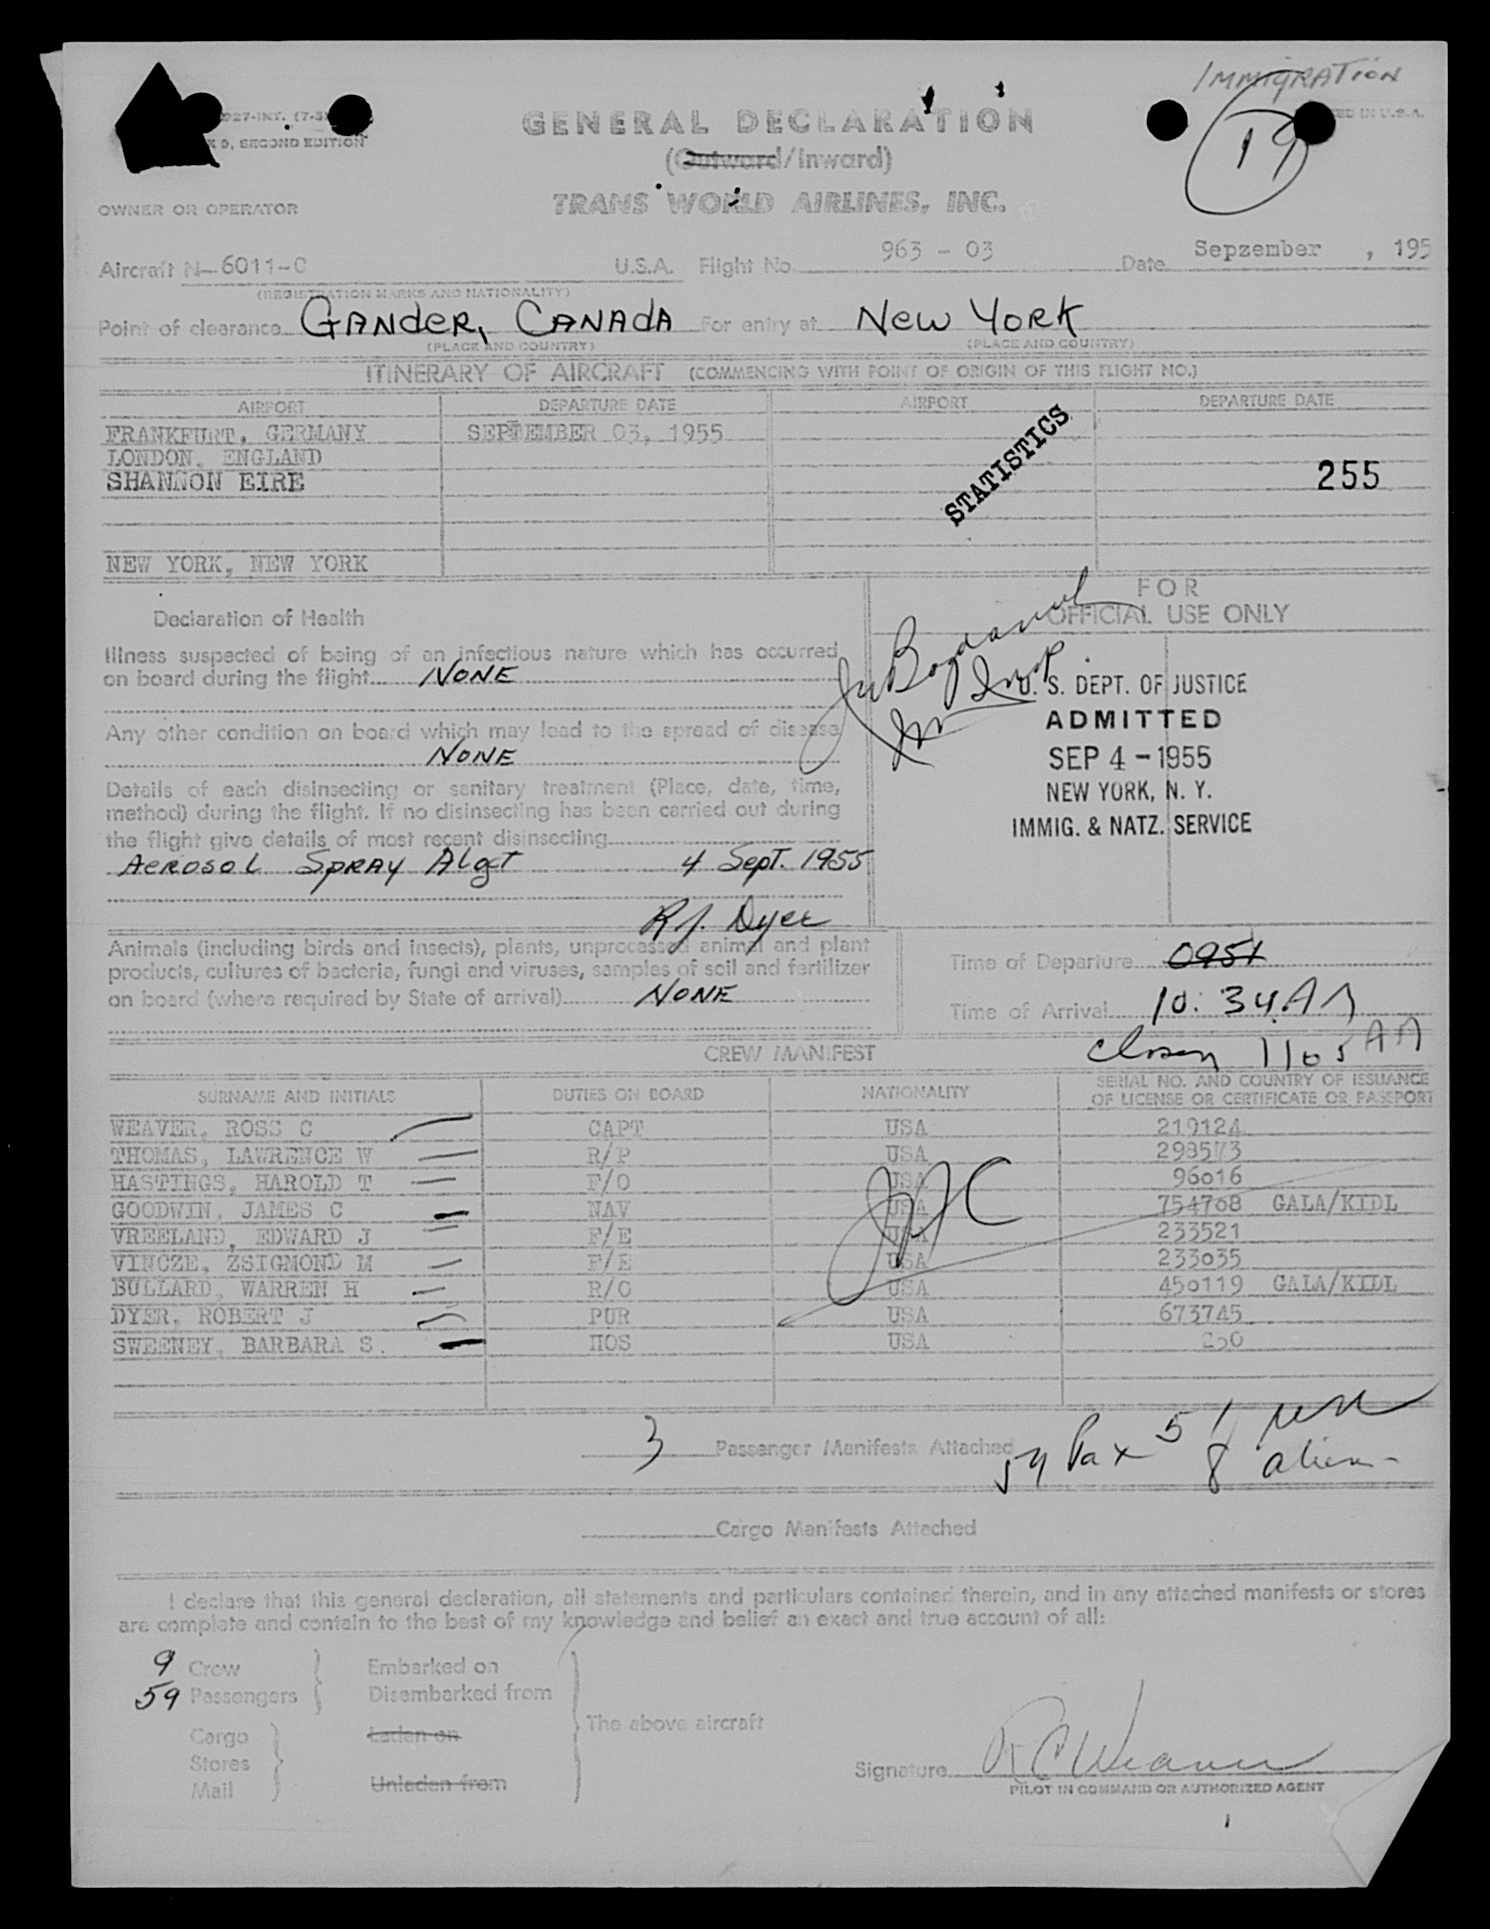 IMMIGRATION
19
GENERAL DECLARATION
(Outward/Inward)
TRANS WORLD AIRLINES, INC.
9, SECOND EDITION
OWNER OR OPERATOR
Aircraft N-6011-C U.S.A. Flight No. 963 - 03 Date Sepzember , 195
(REGISTRATION MARKS AND NATIONALITY)
Point of clearance GANDER, CANADA For entry at New YORK
(PLACE AND COUNTRY) (PLACE AND COUNTRY)
ITINERARY OF AIRCRAFT (COMMENCING WITH POINT OF ORIGIN OF THIS FLIGHT NO.)
AIRPORT DEPARTURE DATE AIRPORT DEPARTURE DATE
FRANKFURT, GERMANY SEPTEMBER 03, 1955
LONDON, ENGLAND
SHANNON EIRE
STATISTICS
255
NEW YORK, NEW YORK
FOR
OFFICIAL USE ONLY
Declaration of Health
Illness suspected of being of an infectious nature which has occurred
on board during the flight NONE
Any other condition on board which may lead to the spread of disease
NONE
U. S. DEPT. OF JUSTICE
ADMITTED
SEP 4 - 1955
NEW YORK, N. Y.
IMMIG. & NATZ. SERVICE
Details of each disinsecting or sanitary treatment (Place, date, time,
method) during the flight. If no disinsecting has been carried out during
the flight give details of most recent disinsecting
AEROSOL SPRAY 4 Sept. 1955
R.J. Dyer
Animals (including birds and insects), plants, unprocessed animal and plant
products, cultures of bacteria, fungi and viruses, samples of soil and fertilizer
on board (where required by State of arrival) NONE
Time of Departure 0951
Time of Arrival 10:34 AM
1105 AM
CREW MANIFEST
SURNAME AND INITIALS DUTIES ON BOARD NATIONALITY SERIAL NO. AND COUNTRY OF ISSUANCE
OF LICENSE OR CERTIFICATE OR PASSPORT
WEAVER, ROSS C CAPT USA 219124
THOMAS, LAWRENCE W R/P USA 298573
HASTINGS, HAROLD T F/O USA 96016
GOODWIN, JAMES C NAV USA 754708 GALA/KIDL
VREELAND, EDWARD J F/E USA 233521
VINCZE, ZSIGMOND M F/E USA 233035
BULLARD, WARREN H R/O USA 450119 GALA/KIDL
DYER, ROBERT J PUR USA 673745
SWEENEY, BARBARA S. HOS USA 250
3 Passenger Manifests Attached
59 Pax 51
8 alien
Cargo Manifests Attached
I declare that this general declaration, all statements and particulars contained therein, and in any attached manifests or stores
are complete and contain to the best of my knowledge and belief an exact and true account of all:
9 Crew Embarked on
59 Passengers Disembarked from
The above aircraft
Cargo Laden on
Stores
Mail Unladen from
Signature R C Weaver
PILOT IN COMMAND OR AUTHORIZED AGENT